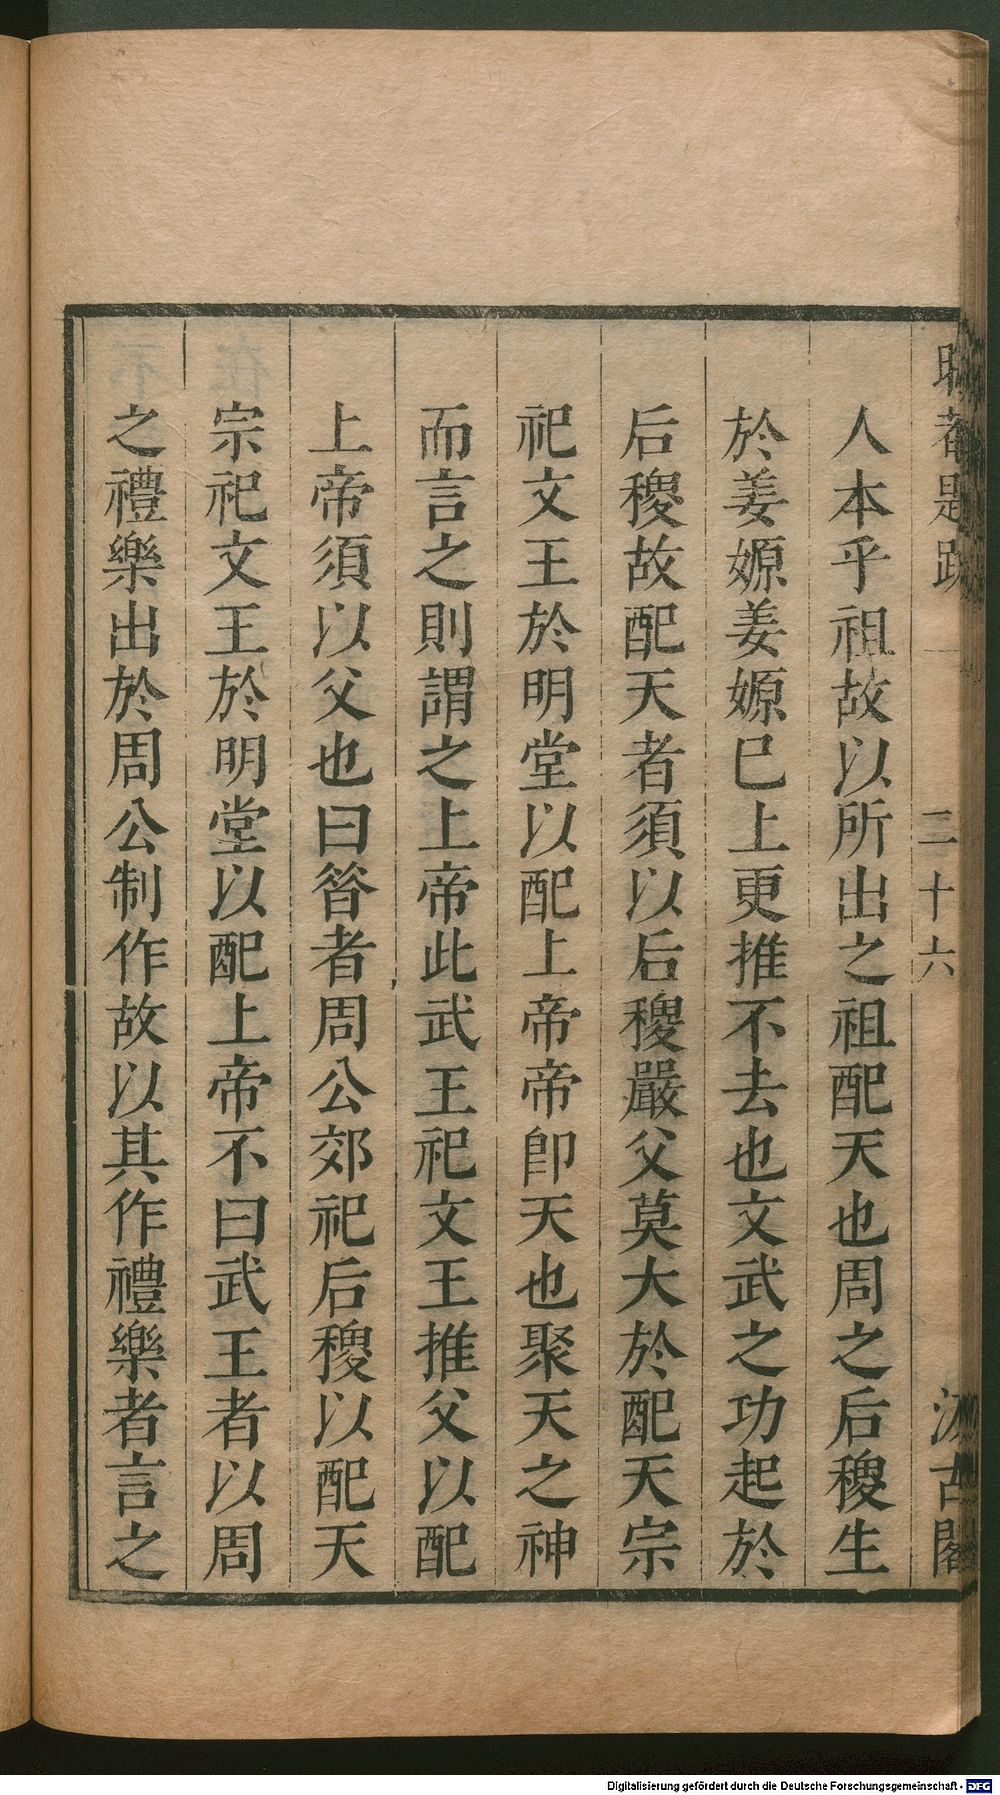 二十六
汲古閣
人本乎祖故以所出之祖配天也周之后稷生
於姜嫄姜嫄巳上更推不去也文武之功起於
后稷故配天者須以后稷嚴父莫大於配天宗
祀文王於明堂以配上帝帝卽天也聚天之神
而言之則謂之上帝此武王祀文王推父以配
上帝須以父也曰昝者周公郊祀后稷以配天
宗祀文王於明堂以配上帝不曰武王者以周
之禮樂出於周公制作故以其作禮樂者言之
Digitalisierung gefördert durch die Deutsche Forschungsgemeinschaft - DFG